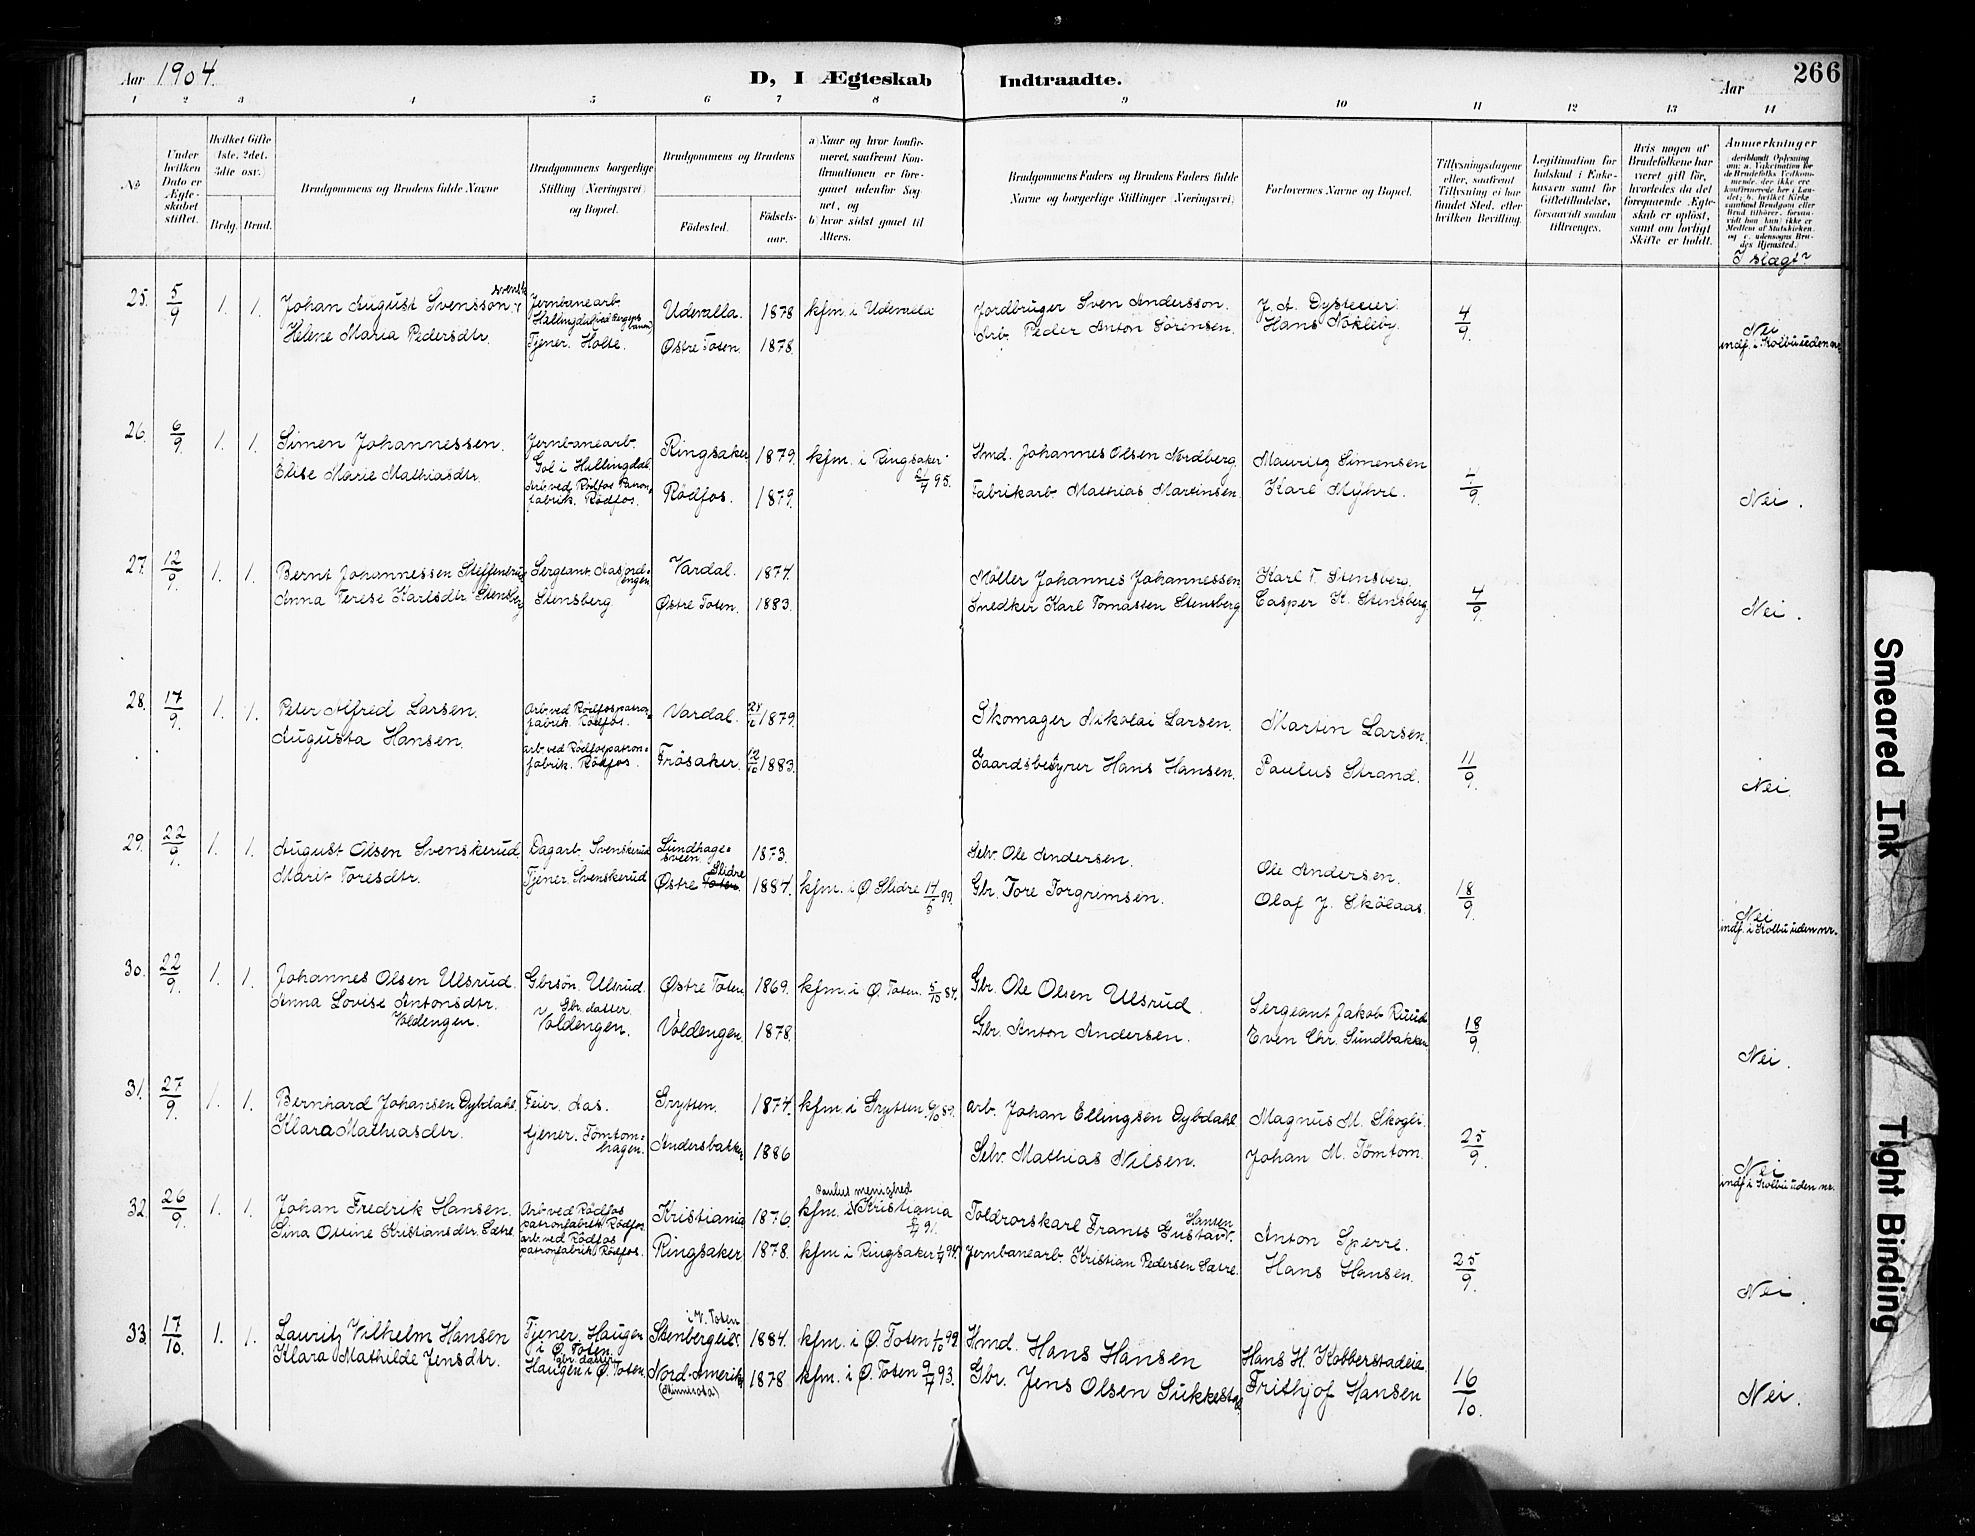 Aar 1904.
D, I Ægteskab Indtraadte.
Aar
266
1 2 3 4 5 6 7 8 9 10 11 12 13 14
No
Under hvilken Dato er Ægteskabet stiftet.
Hvilket Gifte 1ste, 2det, 3die osv.)
Brdg. Brud.
Brudgommens og Brudens fulde Navne
Brudgommens borgerlige Stilling (Næringsvei) og Bopæl.
Brudgommens og Brudens
Fødested. Fødselsaar.
a) Naar og hvor konfirmeret, saafremt Konfirmationen er foregaaet udenfor Sognet, og
b) hvor sidst gaaet til Alters.
Brudgommens Faders og Brudens Faders fulde Navne og borgerlige Stillinger (Næringsvei)
Forlovernes Navne og Bopæl.
Tillysningsdagene eller, saafremt Tillysning ei har fundet Sted, efter hvilken Bevilling.
Legitimation for Indskud i Enkekassen samt for Giftetilladelse, forsaavidt saadan tiltrænges.
Hvis nogen af Brudefolkene har været gift før, hvorledes da det foregaaende Ægteskab er opløst, samt om lovligt Skifte er holdt.
Anmerkninger
I slægt?
25. 5/9 1. 1. Johan August Svensson, svensk Jernbanearb. Hallingdal (ved Bergensbanen) Udevalla. 1878 kfm. i Udevalla Jordbruger Sven Andersson. 4/9
Helene Maria Pedersdtr. Tjener. Holte. Østre Toten. 1878. Arb. Peder Anton Sörensen. Hans Nökleby. Nei
indf. i Kolbu uden nr.
26. 6/9 1. 1. Simen Johannessen. Jernbanearb. Gol i Hallingdal. Ringsaker 1879. kfm. i Ringsaker Smd. Johannes Olsen Nordberg. Mauritz Simensen
Elise Marie Mathiasdtr. Arb. ved Rödfos Patronfabrik. Rödfos. Rödfos. 1879. Fabrikarb. Mathias Martinsen. Karl Myhre. 4/9. Nei.
27. 12/9. 1. 1. Bernt Johannessen Steffensrud Sergeant. Vardal. 1874. Möller Johannes Johannessen Karl T. Stensberg.
Anna Terese Karlsdtr Stensberg Stensberg Østre Toten. 1883. Snedker Karl Tomassen Stensberg. Casper K. Stensberg. 4/9. Nei.
28. 17/9. 1. 1. Peter Alfred Larsen. Arb. ved Rödfos patronfabrik. Rödfos. Vardal. 1879. Skomager Nikolai Larsen. Martin Larsen.
Augusta Hansen. arb. ved Rödfos patronfabrik. Rödfos. Trösaker. 12/10 1883. Gaardsbestyrer Hans Hansen. Paulus Strand. 11/9. Nei.
29. 22/9. 1. 1. August Olsen Svenskerud Dagarb. Svenskerud Lundhagesveen. 1873. Selv. Ole Andersen. Ole Andersen.
Marit Toresdtr. Tjener. Svenskerud Østre Toten Slidre 1884. kfm. i Ø Slidre Gbr. Tore Torgrimsen. Olaf J. Skölaas. 18/9. Nei
indf. i Kolbu uden nr.
30. 22/9. 1. 1. Johannes Olsen Ulsrud. Gbrsön. Ulsrud. Østre Toten 1869. kfm. i Ø. Toten. 5/10 84. Gbr. Ole Olsen Ulsrud. Sergeant Jakob Ruud
Anna Lovise Antonsdtr. Voldengen. Gbr. datter. Voldengen. Voldengen. 1878. Gbr. Anton Andersen. Even Chr. Sundbakken 18/9. Nei.
31. 27/9. 1. 1. Bernhard Johansen Dybdahl. Feier. Aas. Grytten. 1874. kfm. i Grytten. Arb. Johan Ellingsen Dybdahl Magnus M. Skogli.
Klara Mathiasdtr. tjener. Tömtomhagen. Andersbakken 1886 Selv. Mathias Nilsen. Johan M. Tömtom. 25/9. Nei
indf. i Kolbu uden nr.
32. 26/9. 1. 1. Johan Fredrik Hansen. Arb. ved Rödfos patronfabrik Rödfos. Kristiania 1876. kfm. i Paulus menighed Kristiania Toldrorskarl Frants Gustav Hansen. Anton Sperre.
Sina Ottine Kristiansdtr. Sætre. arb. ved Rödfos patronfabrik. Rödfos. Ringsaker 1878. kfm i Ringsaker Jernbanearb. Kristian Pedersen Sætre. Hans Hansen. 25/9. Nei.
33. 17/10. 1. 1. Lauritz Vilhelm Hansen Tjener. Haugen i Ø. Toten. Stenbergeie. i V. Toten 1884. kfm. i Ø. Toten Hmd. Hans Hansen Hans H. Kobberstadeie.
Klara Mathilde Jensdtr. gbr. datter Haugen i Ø. Toten. Nord-Amerika (Minnesota) 1878 kfm. i Ø. Toten 9/7 93. Gbr. Jens Olsen Sukkestad. Frithjof Hansen 16/10. Nei.
Smeared Ink
Tight Binding